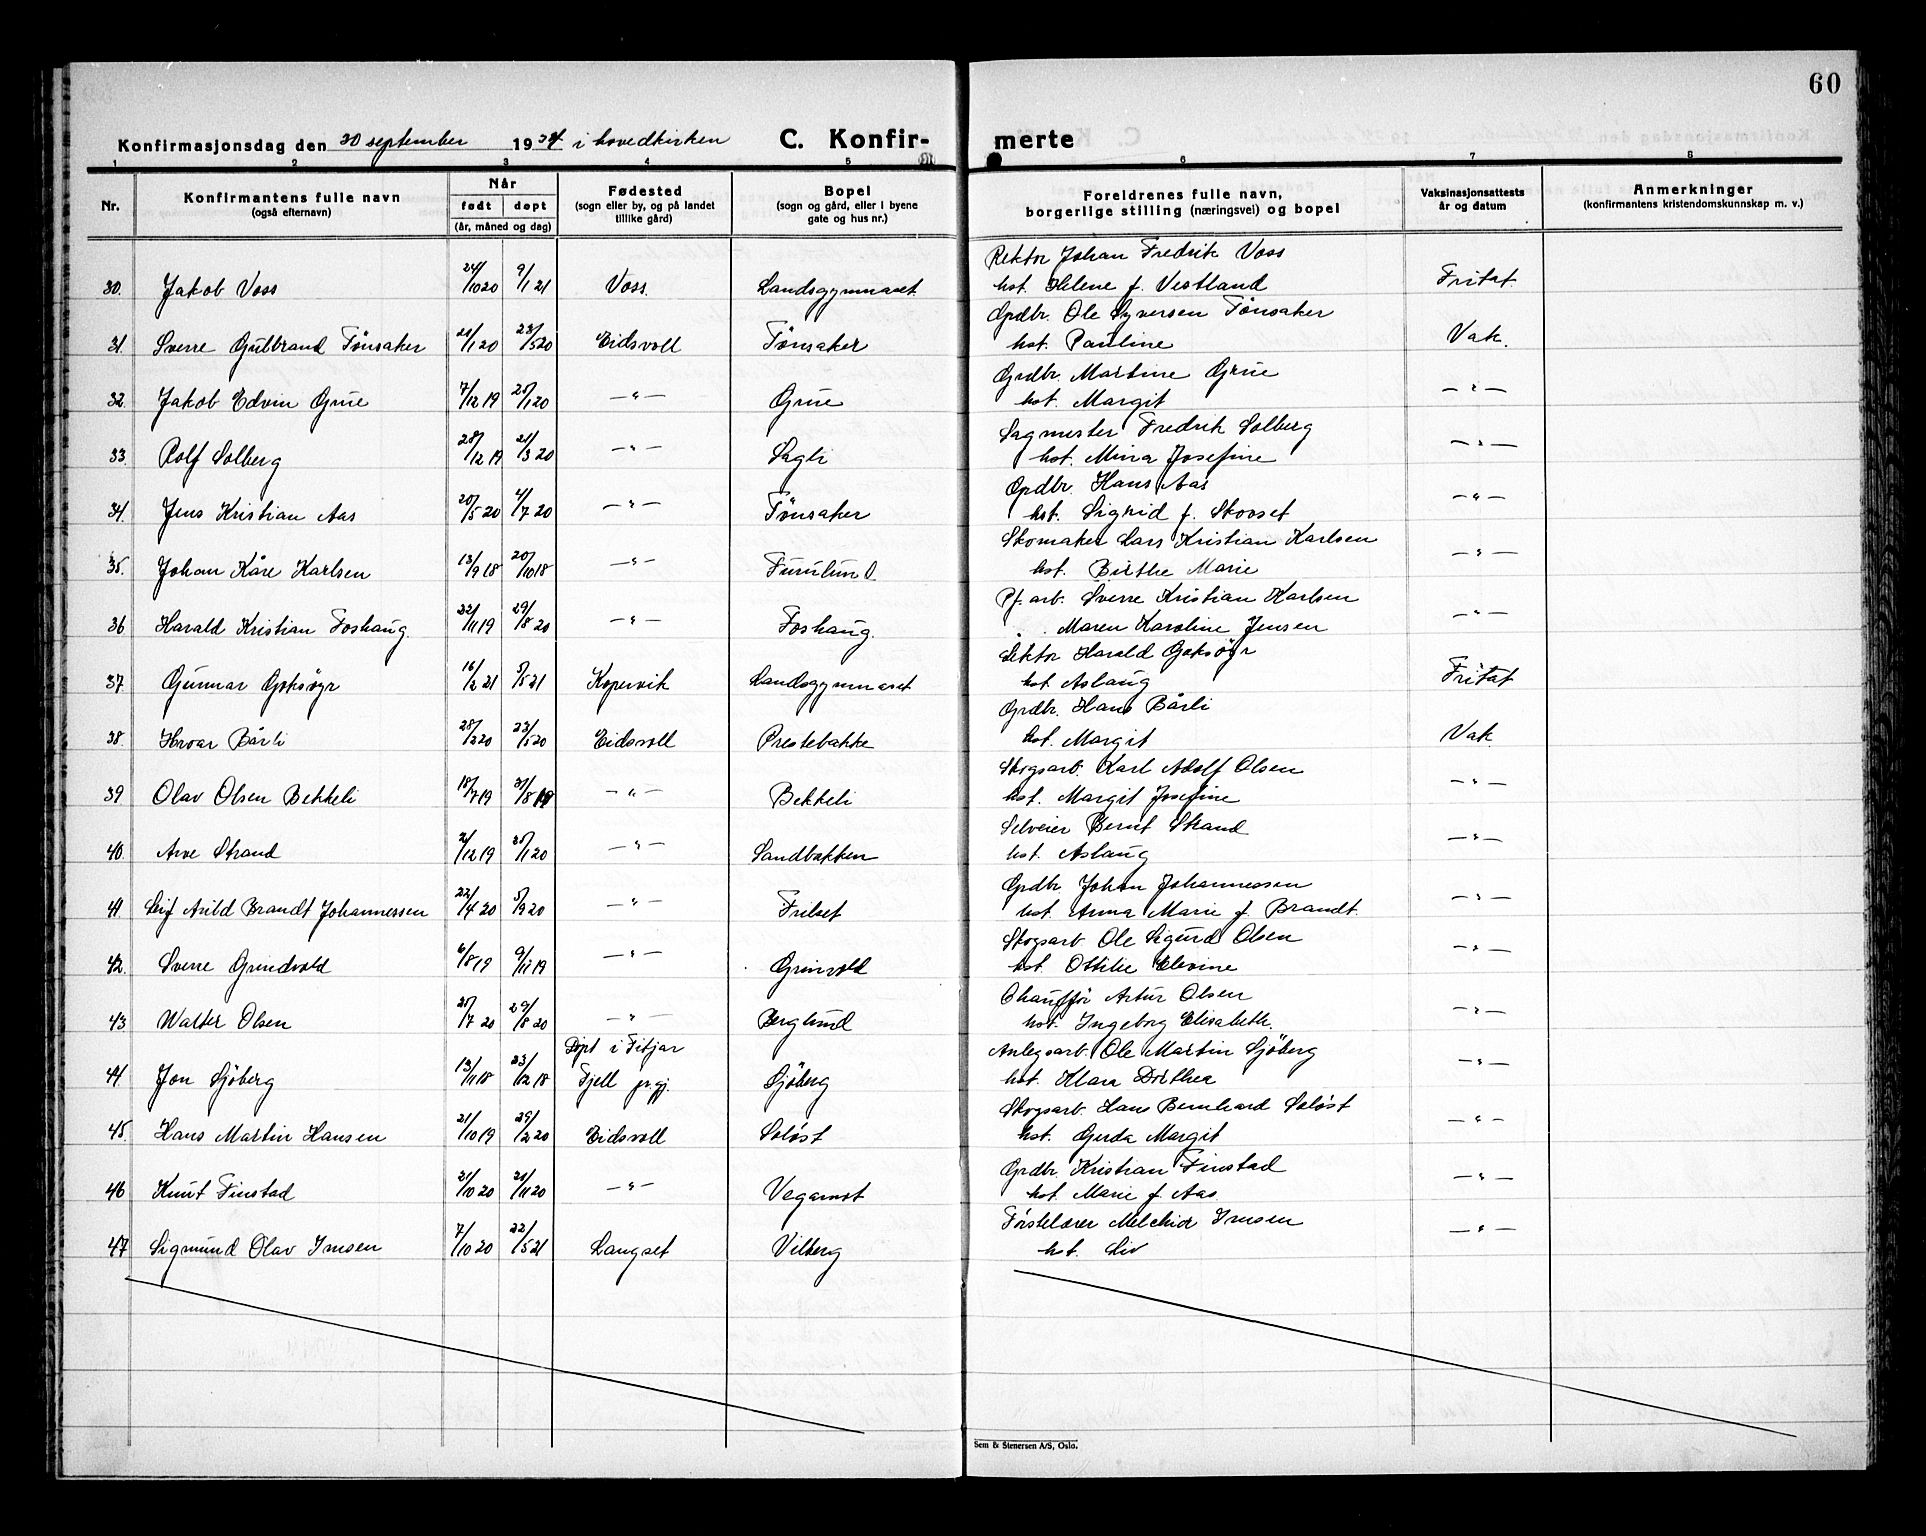 60
Konfirmasjonsdag den 30 september 1934 i hovedkirken C. Konfir-
merte
1 2 3 4 5 6 7 8
Nr. Konfirmantens fulle navn (også efternavn) Når født døpt (år, måned og dag) Fødested (sogn eller by, og på landet tillike gård) Bopel (sogn og gård, eller i byene gate og hus nr.) Foreldrenes fulle navn, borgerlige stilling (næringsvei) og bopel Vaksinasjonsattests år og datum Anmerkninger (konfirmantens kristendomskunnskap m. v.)
Rektor Johan Fredrik Voss
30. Jakob Voss 24/10 20 9/1 21 Voss. Landsgymnaset hst. Helene f. Vestland Fritat
Grdbr. Ole Syversen Tønsaker
31. Sverre Gulbrand Tønsaker 21/1 20 23/5 20 Eidsvoll Tønsaker hst. Pauline Vak.
Grdbr. Martine Grue
32. Jakob Edvin Grue 7/12 19 25/1 20 —"— Grue hst. Margit —"—
Sagmester Fredrik Solberg
33. Rolf Solberg 28/12 19 21/3 20 —"— Sagli hst. Mina Josefine —"—
Grdbr. Hans Aas
34. Jens Kristian Aas 20/5 20 4/7 20 —"— Tønsaker hst. Sigrid f. Skovset —"—
Skomaker Lars Kristian Karlsen
35. Johan Kåre Karlsen 13/9 18 20/10 18 —"— Furulund hst. Birthe Marie —"—
Pf. arb. Sverre Kristian Karlsen
36 Harald Kristian Foshaug. 22/11 19 29/8 20 —"— Foshaug. Maren Karoline Jensen —"—
Lektor Harald Goksøyr
37. Gunnar Goksøyr 16/2 21 5/5 21 Kopervik Landsgymnaset hst. Aslaug Fritat
Grdbr. Hans Bårli
38. Hroar Bårli 28/2 20 23/5 20 Eidsvoll Prestebakke hst. Margit Vak
Skogsarb. Karl Adolf Olsen
39 Olav Olsen Bekkeli 18/7 19 31/8 19 —"— Bekkeli hst. Margit Josefine —"—
Selveier Bernt Strand
40. Arve Strand 2/12 19 25/1 20 —"— Sandbakken hst. Aslaug —"—
Grdbr. Johan Johannessen
41. Leif Arild Brandt Johannessen 22/4 20 5/9 20 —"— Frilset hst. Anna Marie f. Brandt. —"—
Skogsarb. Ole Sigurd Olsen
42. Sverre Grindvold 6/8 19 9/11 19 —"— Grinvold hst. Ottilie Elevine —"—
Chauffør Artur Olsen
43 Walter Olsen 25/7 20 29/8 20 —"— Berglund hst. Ingeborg Elisabeth. —"—
Døpt i Fitjar Anlegsarb. Ole Martin Sjöberg
44. Jon Sjöberg 13/11 18 23/12 18 Fjell pr.gj. Sjöberg hst. Klara Dorthea —"—
Skogsarb. Hans Bernhard Soløst
45. Hans Martin Hansen 21/10 19 29/2 20 Eidsvoll Soløst hst. Gerda Margit —"—
Grdbr. Kristian Finstad
46 Knut Finstad 21/10 20 21/11 20 —"— Vegamot hst. Marie f. Aas. —"—
Førstelærer Melchior Imsen
47 Sigmund Olav Imsen 7/10 20 22/5 21 Langset Vilberg hst. Liv —"—
Sem & Stenersen A/S, Oslo.